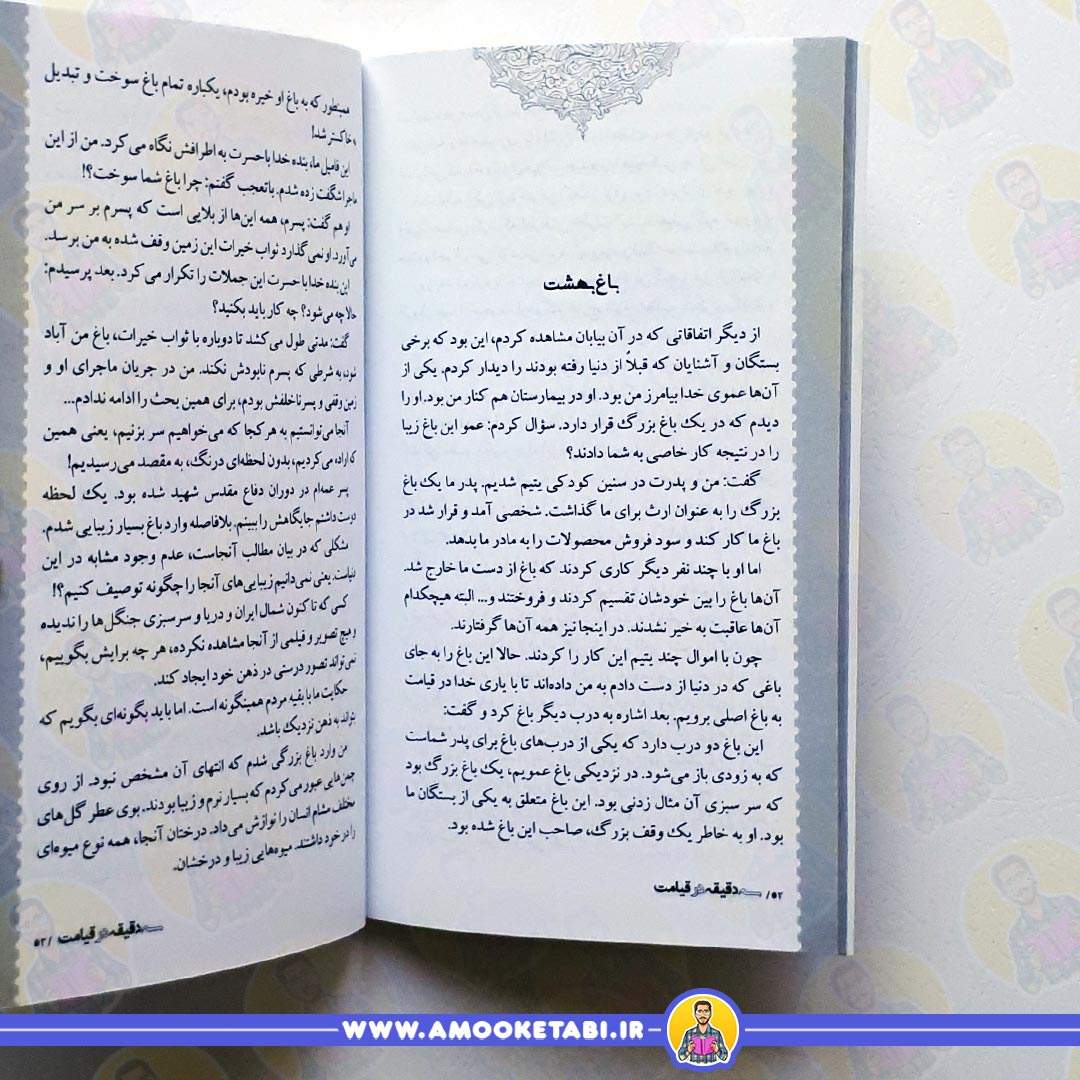 باغ بهشت
از دیگر اتفاقاتی که در آن بیابان مشاهده کردم، این بود که برخی
بستگان و آشنایان که قبلاً از دنیا رفته بودند را دیدار کردم. یکی از
آن‌ها عموی خدا بیامرز من بود. او در بیمارستان هم کنار من بود. او را
دیدم که در یک باغ بزرگ قرار دارد. سؤال کردم: عمو این باغ زیبا
را در نتیجه کار خاصی به شما دادند؟
گفت: من و پدرت در سنین کودکی یتیم شدیم. پدر ما یک باغ
بزرگ را به عنوان ارث برای ما گذاشت. شخصی آمد و قرار شد در
باغ ما کار کند و سود فروش محصولات را به مادر ما بدهد.
اما او با چند نفر دیگر کاری کردند که باغ از دست ما خارج شد.
آن‌ها باغ را بین خودشان تقسیم کردند و فروختند و... البته هیچکدام
آن‌ها عاقبت به خیر نشدند. در اینجا نیز همه آن‌ها گرفتارند.
چون با اموال چند یتیم این کار را کردند. حالا این باغ را به جای
باغی که در دنیا از دست دادم به من داده‌اند تا با یاری خدا در قیامت
به باغ اصلی برویم. بعد اشاره به درب دیگر باغ کرد و گفت:
این باغ دو درب دارد که یکی از درب‌های باغ برای پدر شماست
که به زودی باز می‌شود. در نزدیکی باغ عمویم، یک باغ بزرگ بود
که سر سبزی آن مثال زدنی بود. این باغ متعلق به یکی از بستگان ما
بود. او به خاطر یک وقف بزرگ، صاحب این باغ شده بود.
۵۲/ سه دقیقه در قیامت
همینطور که به باغ او خیره بودم، یکباره تمام باغ سوخت و تبدیل
به خاکستر شد!
این فامیل ما، بنده خدا باحسرت به اطرافش نگاه می‌کرد. من از این
ماجرا شگفت زده شدم. باتعجب گفتم: چرا باغ شما سوخت؟!
او هم گفت: پسرم، همه این‌ها از بلایی است که پسرم بر سر من
می‌آورد. او نمی‌گذارد ثواب خیرات این زمین وقف شده به من برسد.
این بنده خدا با حسرت این جملات را تکرار می‌کرد. بعد پرسیدم:
حالا چه می‌شود؟ چه کار باید بکنید؟
گفت: مدتی طول می‌کشد تا دوباره با ثواب خیرات، باغ من آباد
شود، به شرطی که پسرم نابودش نکند. من در جریان ماجرای او و
زمین وقفی و پسر ناخلفش بودم، برای همین بحث را ادامه ندادم...
آنجا می‌توانستیم به هر کجا که می‌خواهیم سر بزنیم، یعنی همین
که اراده می‌کردیم، بدون لحظه‌ای درنگ، به مقصد می‌رسیدیم!
پسر عمه‌ام در دوران دفاع مقدس شهید شده بود. یک لحظه
دوست داشتم جایگاهش را ببینم. بلافاصله وارد باغ بسیار زیبایی شدم.
مشکلی که در بیان مطالب آنجاست، عدم وجود مشابه در این
دنیاست. یعنی نمی‌دانیم زیبایی‌های آنجا را چگونه توصیف کنیم؟!
کسی که تا کنون شمال ایران و دریا و سرسبزی جنگل‌ها را ندیده
و هیچ تصویر و فیلمی از آنجا مشاهده نکرده، هر چه برایش بگوییم،
نمی‌تواند تصور درستی در ذهن خود ایجاد کند.
حکایت ما با بقیه مردم همینگونه است. اما باید بگونه‌ای بگویم که
بتواند به ذهن نزدیک باشد.
من وارد باغ بزرگی شدم که انتهای آن مشخص نبود. از روی
چمن‌هایی عبور می‌کردم که بسیار نرم و زیبا بودند. بوی عطر گل‌های
مختلف مشام انسان را نوازش می‌داد. درختان آنجا، همه نوع میوه‌ای
را در خود داشتند. میوه‌هایی زیبا و درخشان.
سه دقیقه در قیامت /۵۳
WWW.AMOOKETABI.IR